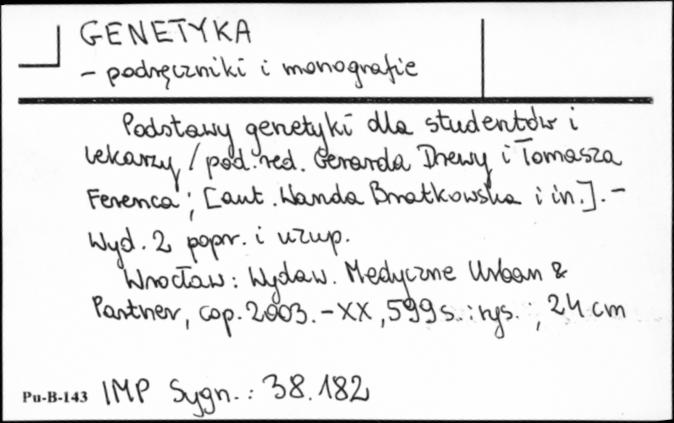 GENETYKA
- podręczniki i monografie
Podstawy genetyki dla studentów i
lekarzy / pod. red. Gerarda Drewy i Tomasza
Ferenca ; [aut. Wanda Bratkowska i in.]. -
Wyd. 2 popr. i uzup.
Wrocław : Wydaw. Medyczne Urban &
Partner, cop. 2003. - XX, 599 s. : rys. ; 24 cm
Pu-B-143 IMP Sygn. : 38.182